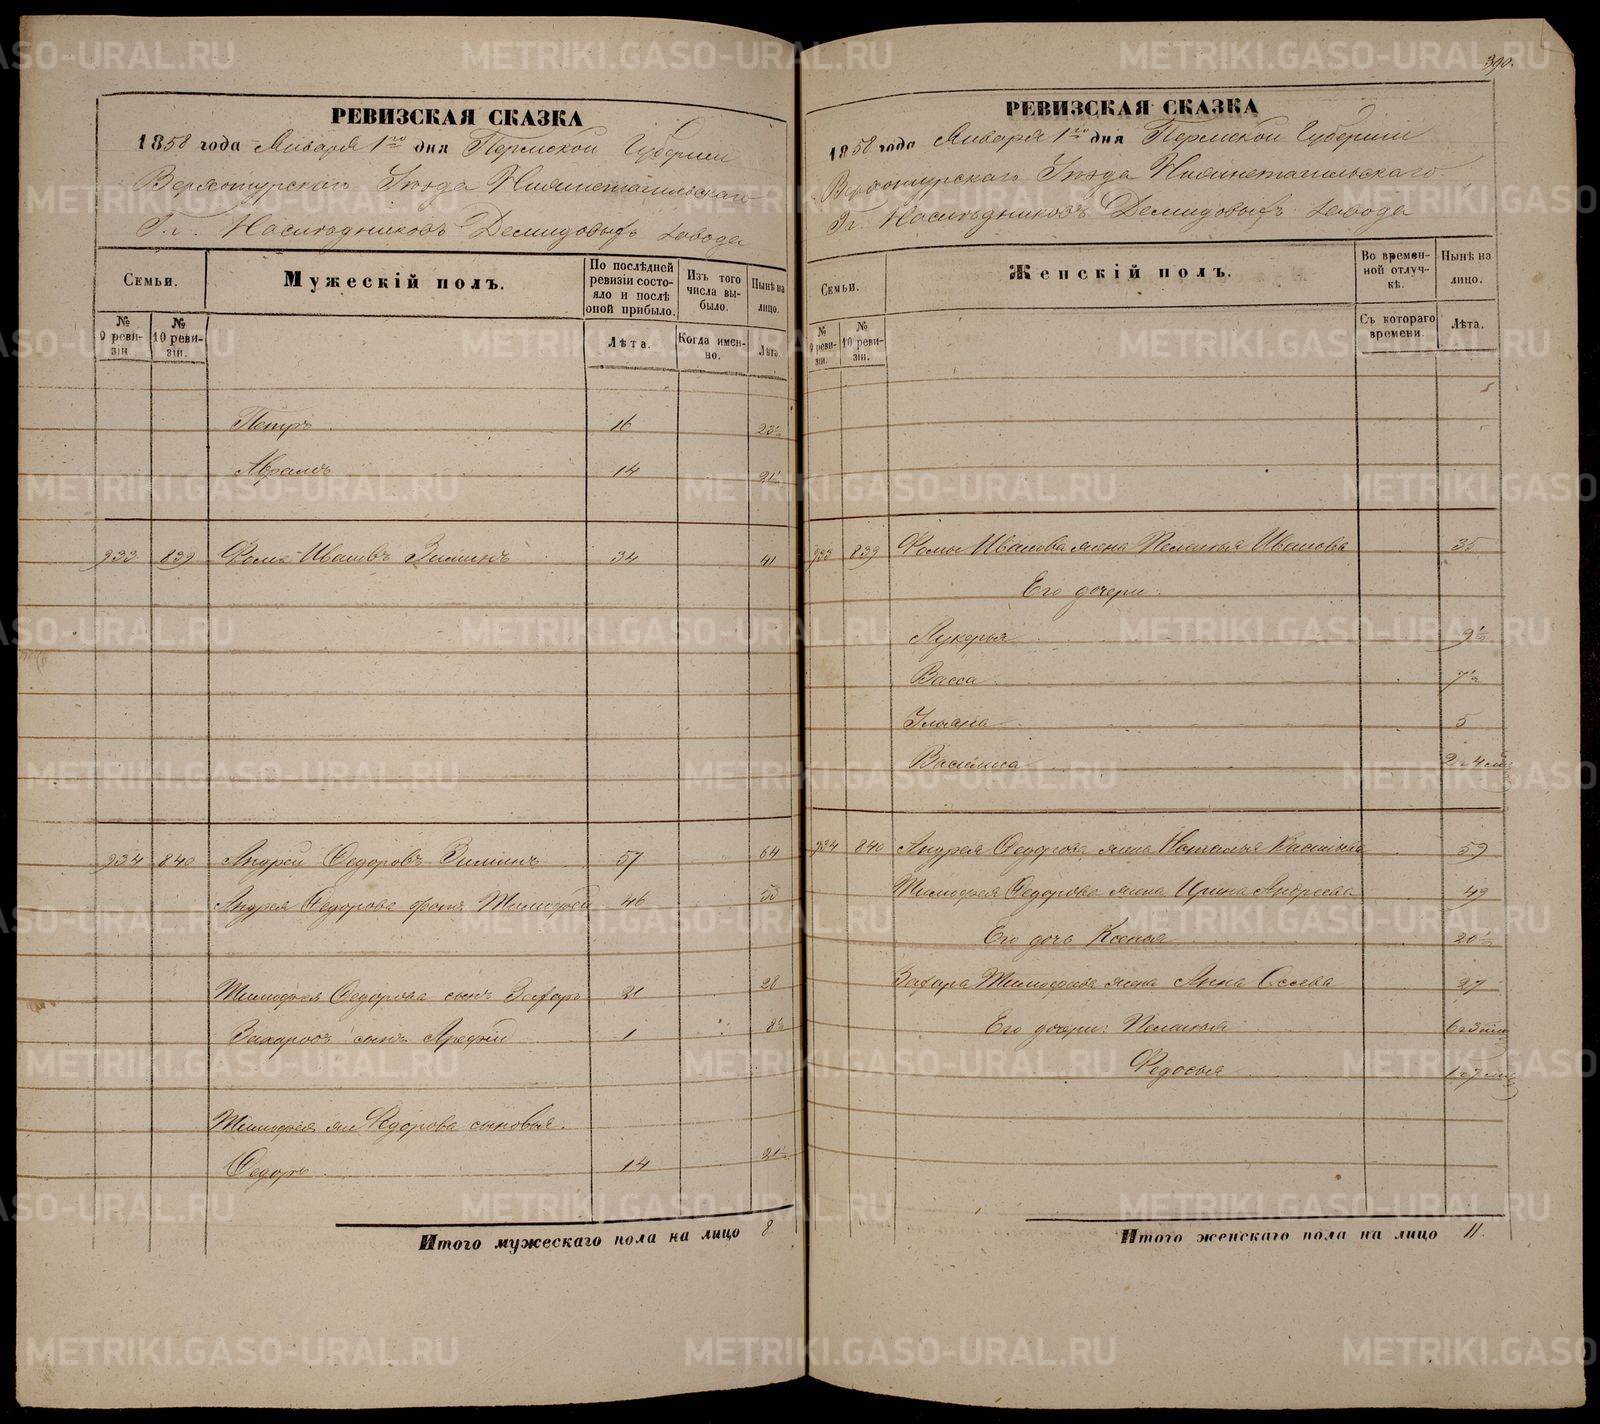 390.
РЕВИЗСКАЯ СКАЗКА
1858 года Января 1го дня Пермской Губернии
Верхотурскаго Уезда Нижнетагильскаго
Гг. Наследниковъ Демидовыхъ завода
Семьи.
№ 9 ревизіи.
№ 10 ревизіи.
Мужескій полъ.
По послѣдней ревизіи состояло и послѣ оной прибыло.
Лѣта.
Изъ того числа выбыло.
Когда именно.
Нынѣ на лицо.
Лѣта.
Петръ 16 23½
Аврамъ 14 21½
933 839 Фома Ивановъ Зиминъ 34 41
934 840 Андрей Федоровъ Зиминъ 57 64
Андрея Федорова братъ Тимофей 46 53
Тимофея Федорова сынъ Захаръ 21 28
Захаровъ сынъ Арефій 1 8½
Тимофея же Федорова сыновья.
Федоръ 14 21½
Итого мужескаго пола на лицо 8
РЕВИЗСКАЯ СКАЗКА
1858 года Января 1го дня Пермской Губернии
Верхотурскаго Уезда Нижнетагильскаго
Гг. Наследниковъ Демидовыхъ завода
Семьи.
№ 9 ревизіи.
№ 10 ревизіи.
Женскій полъ.
Во временной отлучкѣ.
Съ котораго времени.
Нынѣ на лицо.
Лѣта.
933 839 Фомы Иванова жена Пелагья Иванова 35
Его дочери
Лукерья 9½
Васса 7½
Ульяна 5
Василиса 2 4 мѣ
934 840 Андрея Федорова жена Наталья 59
Тимофея Федорова жена Ирина Андреева 49
Его дочь Ксенья 20½
Захара Тимофеева жена Анна 27
Его дочери: Пелагья 6
Федосья 1
Итого женскаго пола на лицо 11.
METRIKI.GASO-URAL.RU